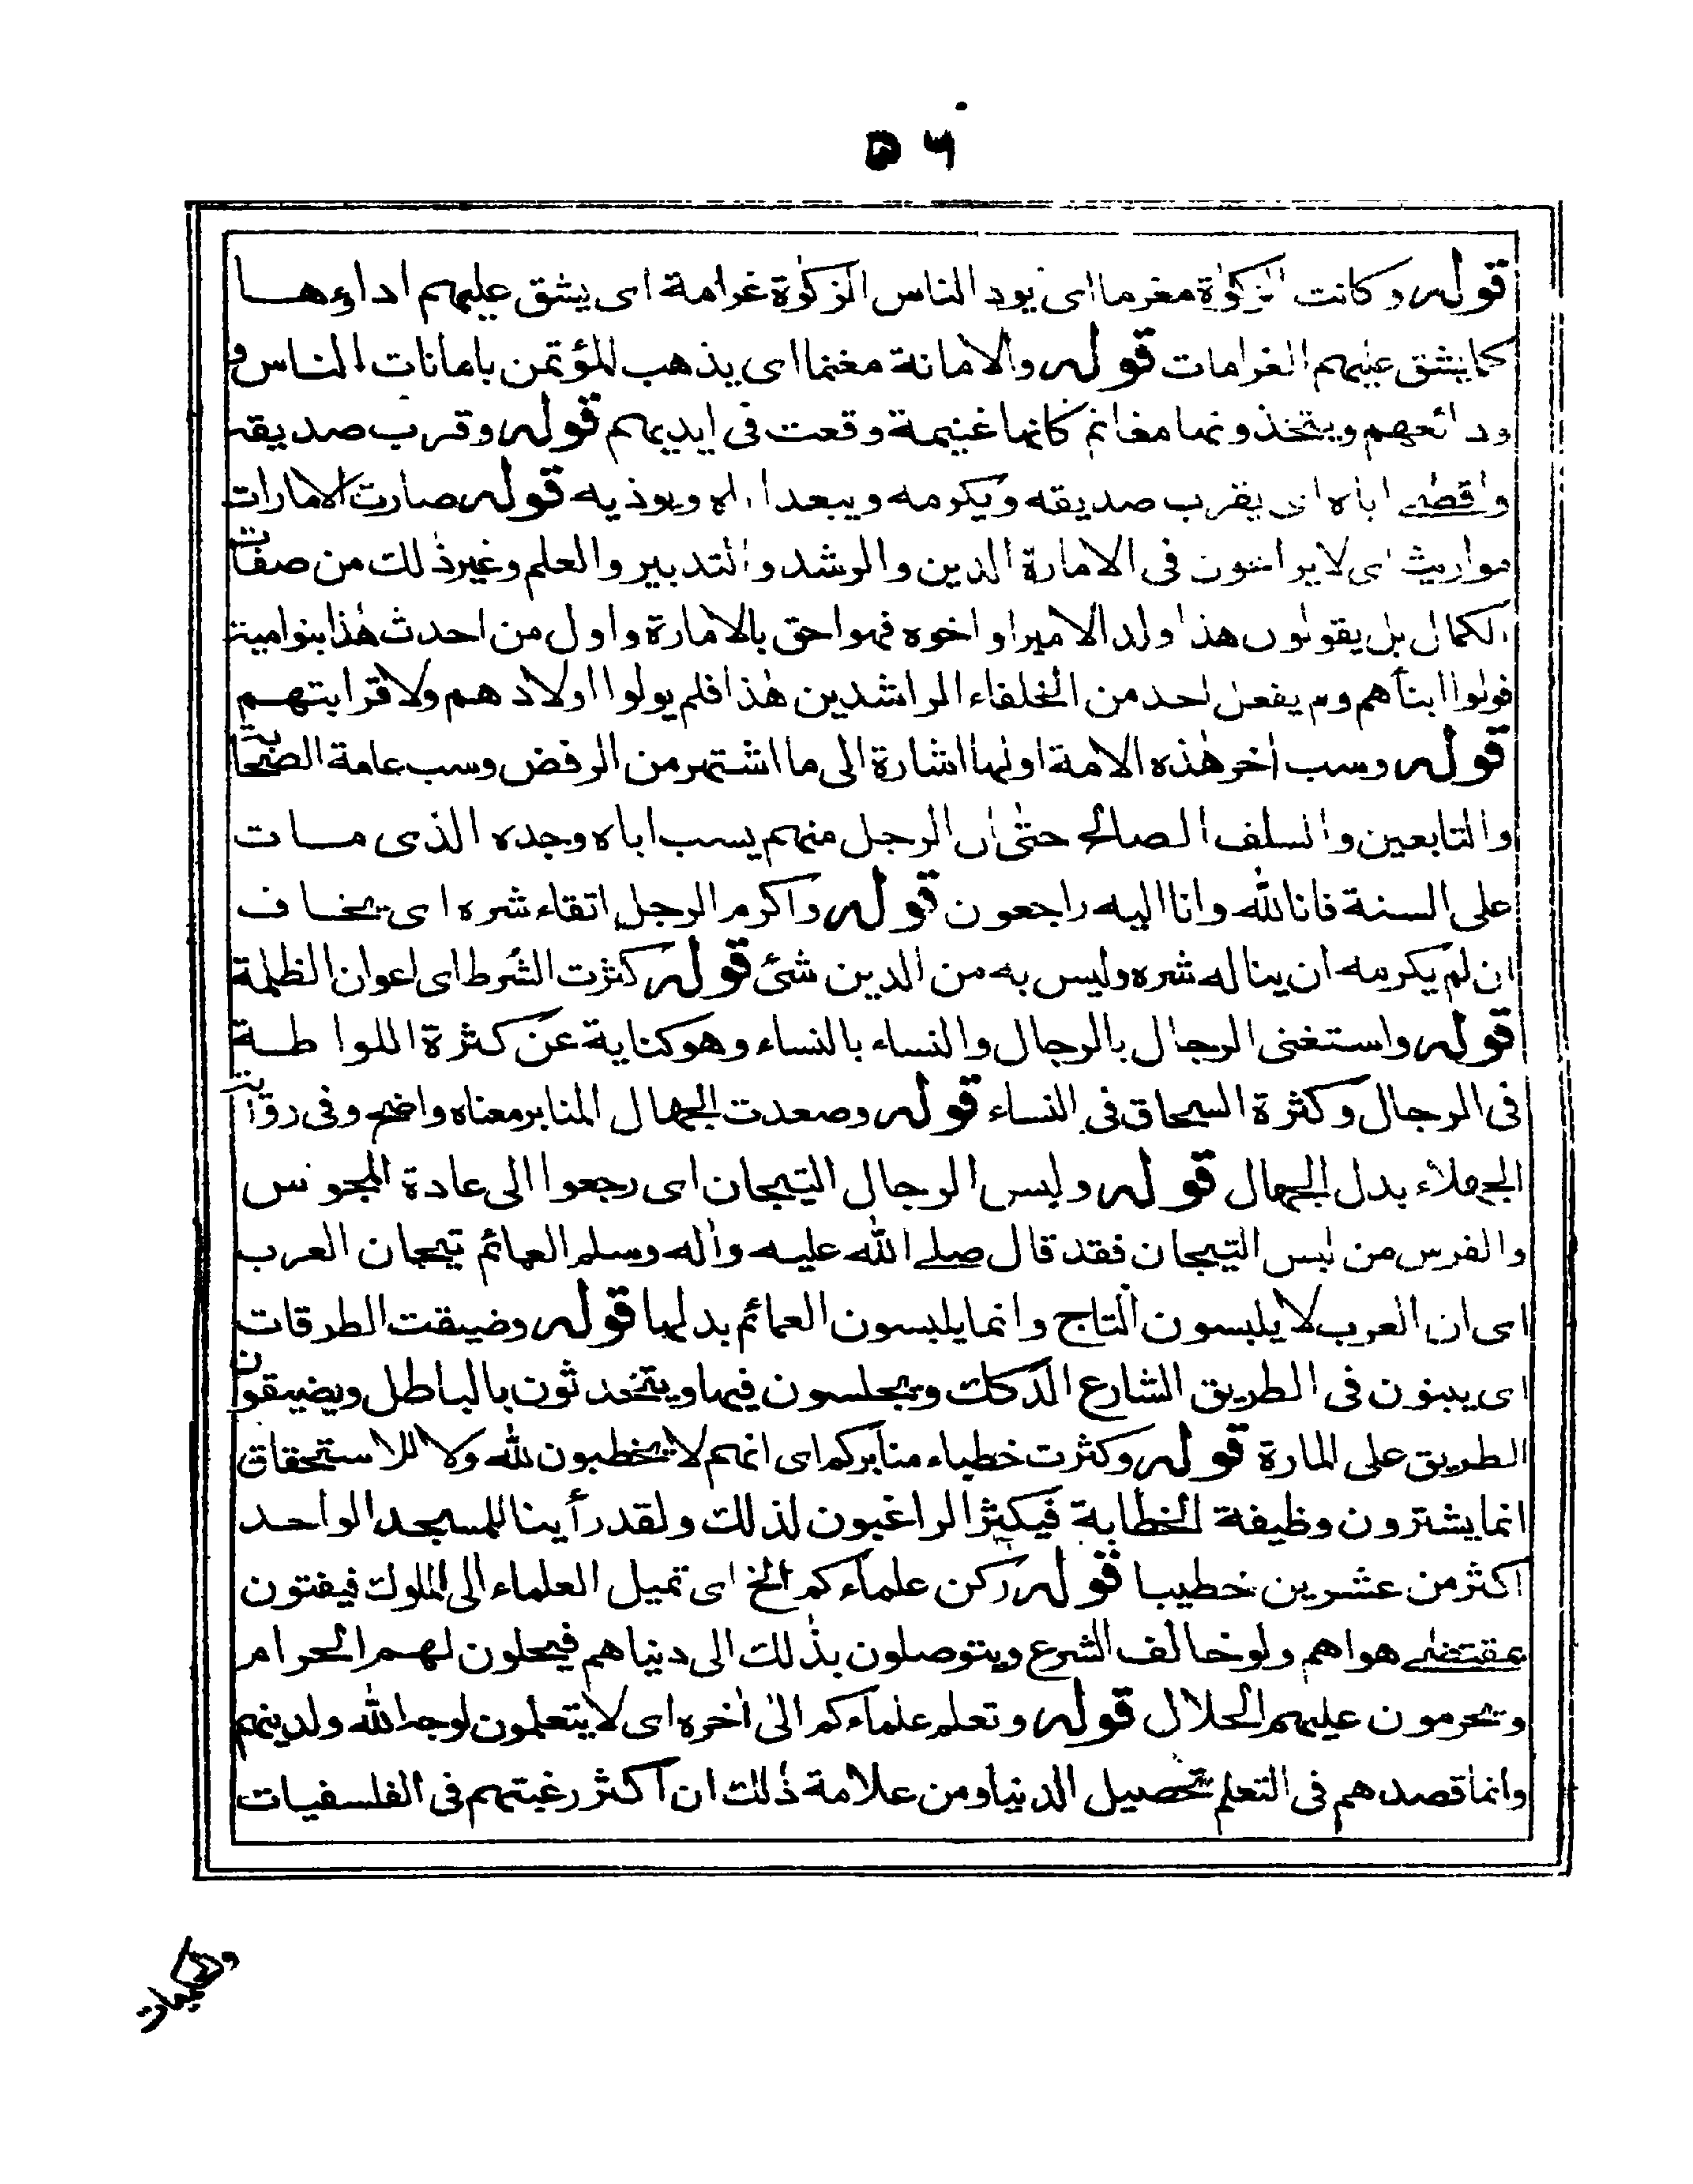 ٥٦
قوله وكانت الزكوٰة مغرما اى يود الناس الزكوٰة غرامة اى يشق عليهم اداؤها
كما يشق عليهم الغرامات قوله والامانة مغنما اى يذهب المؤتمن بامانات الناس و
ودائعهم ويتخذونها مغانم كانها غنيمة وقعت فى ايديهم قوله وقرب صديقه
واقصے اباه اى يقرب صديقه ويكرمه ويبعد اباه ويوذيه قوله صارت الامارات
مواريث اى لا يراعون فى الامارة الدين والرشد والتدبير والعلم وغير ذٰلك من صفات
الكمال بل يقولون هذا ولد الامير او اخوه فهو احق بالامارة واول من احدث هٰذا بنو امية
فولوا ابنآهم ولم يفعل احد من الخلفاء الراشدين هٰذا فلم يولوا اولادهم ولا قرابتهم
قوله وسب اٰخر هٰذه الامة اولها اشارة الى ما اشتهر من الرفض وسب عامة الصحابة
والتابعين والسلف الصالح حتٰى ان الرجل منهم يسب اباه وجده الذى مات
على السنة فانا لله وانا اليه راجعون قوله واكرم الرجل اتقاء شره اى يخاف
ان لم يكرمه ان يناله شره وليس به من الدين شئ قوله كثرت الشُرط اى اعوان الظلمة
قوله واستغنى الرجال بالرجال والنساء بالنساء وهو كناية عن كثرة اللواطة
فى الرجال وكثرة السحاق فى النساء قوله وصعدت الجهال المنابر معناه واضح وفى رواية
الجهلاء بدل الجهال قوله ولبس الرجال التيجان اى رجعوا الى عادة المجوس
والفرس من لبس التيجان فقد قال صلے الله عليه واٰله وسلم العمائم تيجان العرب
اى ان العرب لا يلبسون التاج وانما يلبسون العمائم بدلها قوله وضيقت الطرقات
اى يبنون فى الطريق الشارع الدكك ويجلسون فيها ويتحدثون بالباطل ويضيقون
الطريق على المارة قوله وكثرت خطباء منابركم اى انهم لا يخطبون لله ولا للاستحقاق
انما يشترون وظيفة الخطابة فيكثر الراغبون لذلك ولقد رأينا للمسجد الواحد
اكثر من عشرين خطيبا قوله ركن علماءكم الخ اى تميل العلماء الى الملوك فيفتون
بمقتضے هواهم ولو خالف الشرع ويتوصلون بذٰلك الى دنياهم فيحلون لهم الحرام
ويحرمون عليهم الحلال قوله وتعلم علماءكم الىٰ اٰخره اى لا يتعلمون لوجه الله ولدينهم
وانما قصدهم فى التعلم تحصيل الدنيا ومن علامة ذٰلك ان اكثر رغبتهم فى الفلسفيات